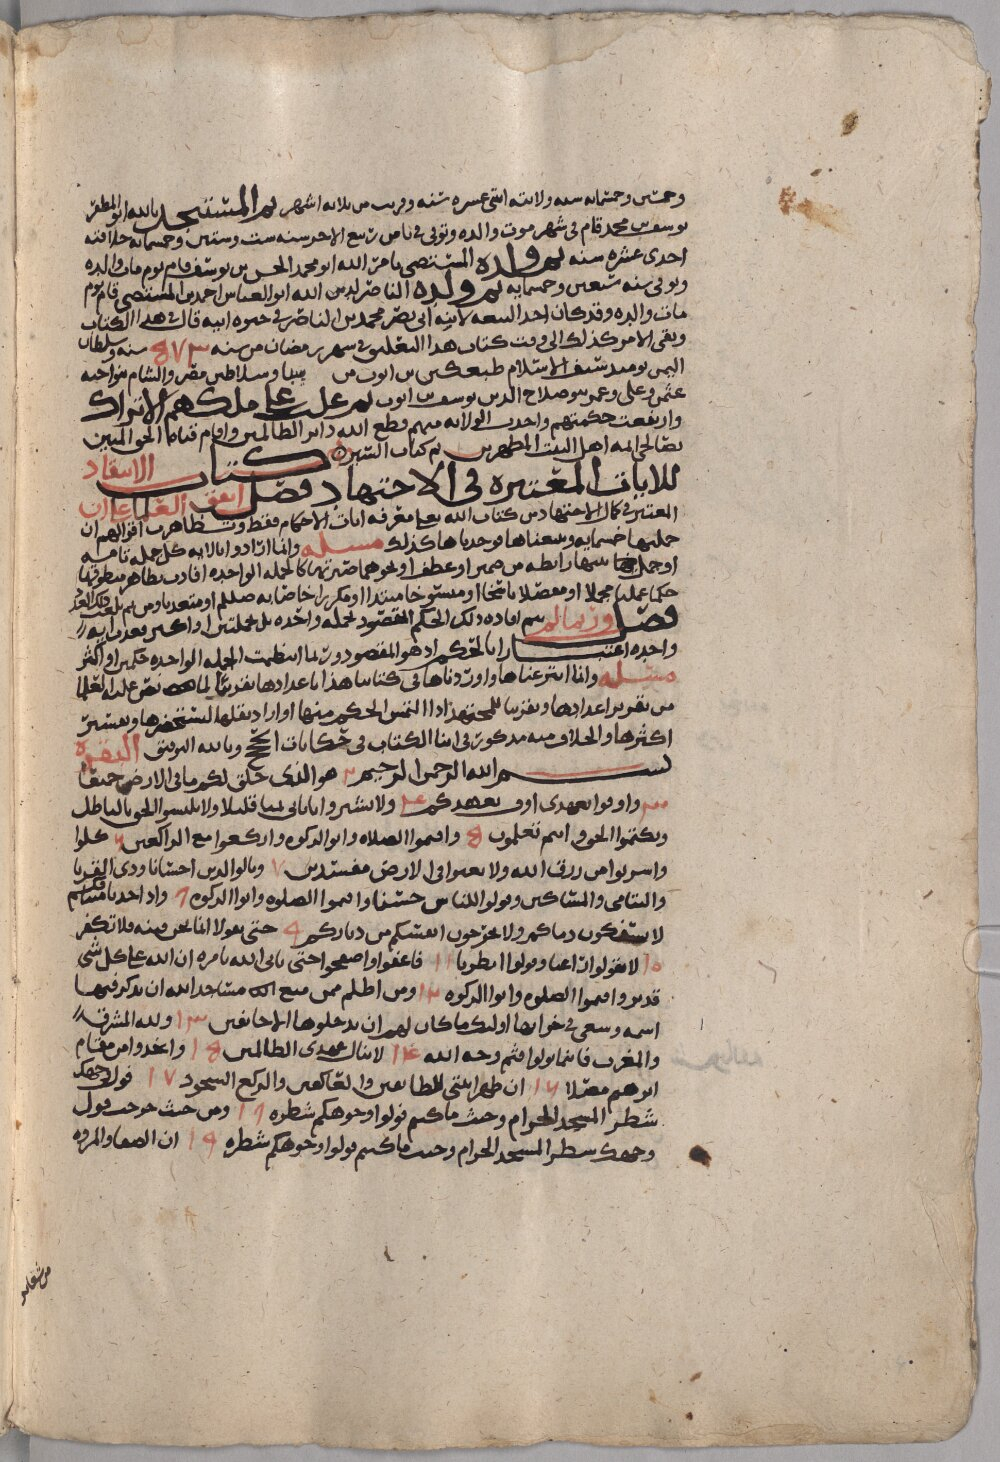 وخمسين وخمسمايه سنه ولايته اثني عشره سنه وقريب من ثلاثه اشهر ثم المستنجد بالله ابو المظفر
يوسف بن محمد قام في شهر موت والده وتوفي في ثامن ربيع الاخر سنه ست وستين وخمسمايه خلافته
احدى عشره سنه ثم ولده المستضي بامر الله ابو محمد الحسن بن يوسف قام يوم مات والده
وتوفي سنه سبعين وخمسمايه ثم ولده الناصر لدين الله ابو العباس احمد بن المستضي قام يوم
مات والده وقد كان اخذ البيعه لابنه ابي نصر محمد بن الناصر في حيوه ابيه قال في هذا الكتاب
وبقي الامر كذلك الى وقت كتاب هذا التعليق في شهر رمضان من سنه سنه وسلطان
اليمن يوميد سيف الاسلام طغتكين بن ايوب من وسلاطين مصر والشام بنو اخيه
عثمن وعلي وعمر بنو صلاح الدين يوسف بن ايوب ثم غلب على ملكهم الاتراك
وارتفعت حكمتهم واخذت الولايه منهم قطع الله دابر الظالمين واقام قناه الحق المبين
بصالحي ايمه اهل البيت المطهرين تم كتاب السيره كتاب الانتقاد
للايات المعتبره في الاجتهاد فصل اتفق العلما على ان
المعتبر في كمال الاجتهاد من كتاب الله تعالى معرفه ايات الاحكام فقط وتظاهرت اقوالهم ان
جملتها خمسمايه وتتبعناها فوجدناها كذلك مسله وانما ارادوا بالايه كل جمله تامه
او جمل بينها رابطه من ضمير او عطف او نحوهما صيرتها كالجمله الواحده افادت بظاهر منطوقها
حكما عمليا مجملا او مفصلا ناسخا او منسوخا مبتدا او مكررا خاصا به صلعم او متعديا
فصل وربما لم يتم افاده ذلك الحكم المقصود بجمله واحده بل بجملتين او اكثر فعدت ايه
واحده اعتبارا بالحكم اذ هو المقصود وربما انتظمت الجمله الواحده حكمين او اكثر
مسله وانما انتزعناها واوردناها في كتابنا هذا باعدادها تقريبا لما نص عليه العلما
من تقدير اعدادها وتقريبا للمجتهد اذا التمس الحكم منها او اراد نقلها ليستحضرها وتفسير
اكثرها والخلاف فيه مذكور في اثنا الكتاب في حكايات الحجج وبالله التوفيق البقره
بسم الله الرحمن الرحيم ٢ هو الذي خلق لكم ما في الارض جميعا
٣ واوفوا بعهدي اوف بعهدكم ٤ ولا تشتروا باياتي ثمنا قليلا ولا تلبسوا الحق بالباطل
وتكتموا الحق وانتم تعلمون ٥ واقيموا الصلاه واتوا الزكوه واركعوا مع الراكعين ٦ كلوا
واشربوا من رزق الله ولا تعثوا في الارض مفسدين ٧ وبالوالدين احسانا وذي القربا
واليتامى والمساكين وقولوا للناس حسنا واقيموا الصلوه واتوا الزكوه ٨ واذ اخذنا ميثاقكم
لا تسفكون دماكم ولا تخرجون انفسكم من دياركم ٩ حتى يقولا انما نحن فتنه فلا تكفر
١٠ لا تقولوا راعنا وقولوا انظرنا ١١ فاعفوا واصفحوا حتى ياتي الله بامره ان الله على كل شي
قدير واقيموا الصلوه واتوا الزكوه ١٢ ومن اظلم ممن منع مساجد الله ان يذكر فيها
اسمه وسعى في خرابها اوليك ما كان لهم ان يدخلوها الا خايفين ١٣ ولله المشرق
والمغرب فاينما تولوا فثم وجه الله ١٤ لا ينال عهدي الظالمين ١٥ واتخذوا من مقام
ابرهيم مصلا ١٦ ان طهرا بيتي للطايفين والعاكفين والركع السجود ١٧ فول وجهك
شطر المسجد الحرام وحيث ما كنتم فولوا وجوهكم شطره ١٨ ومن حيث خرجت فول
وجهك شطر المسجد الحرام وحيث ما كنتم فولوا وجوهكم شطره ١٩ ان الصفا والمروه
من شعاير